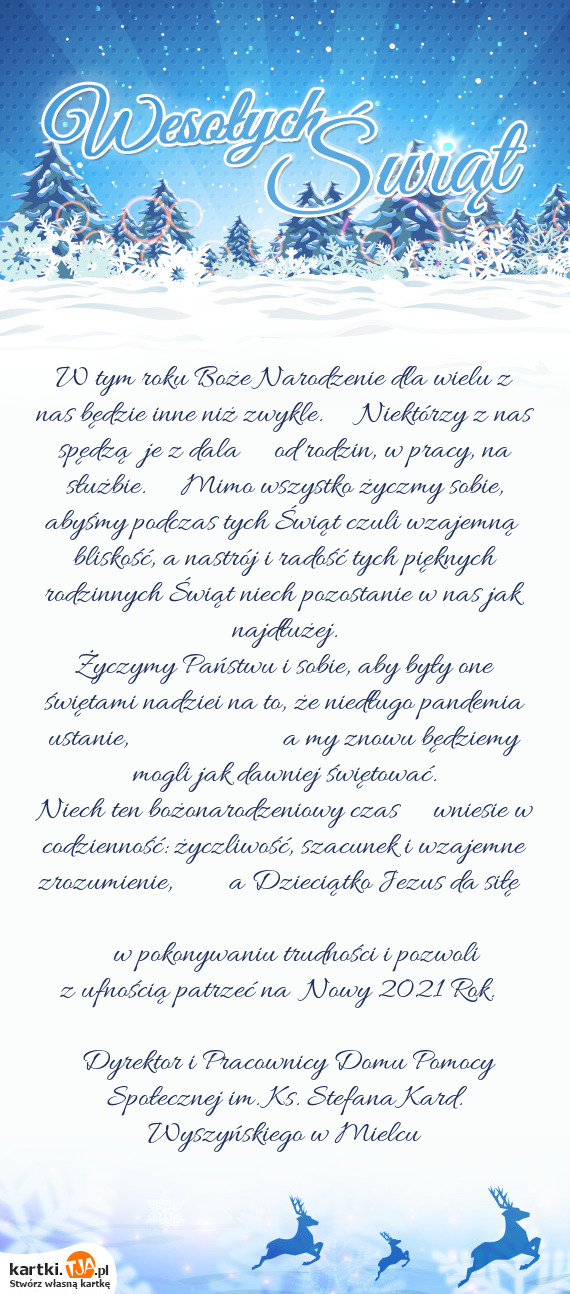 Wesołych
Świąt
W tym roku Boże Narodzenie dla wielu z
nas będzie inne niż zwykle. Niektórzy z nas
spędzą je z dala od rodzin, w pracy, na
służbie. Mimo wszystko życzmy sobie,
abyśmy podczas tych Świąt czuli wzajemną
bliskość, a nastrój i radość tych pięknych
rodzinnych Świąt niech pozostanie w nas jak
najdłużej.
Życzymy Państwu i sobie, aby były one
świętami nadziei na to, że niedługo pandemia
ustanie, a my znowu będziemy
mogli jak dawniej świętować.
Niech ten bożonarodzeniowy czas wniesie w
codzienność: życzliwość, szacunek i wzajemne
zrozumienie, a Dzieciątko Jezus da siłę
w pokonywaniu trudności i pozwoli
z ufnością patrzeć na Nowy 2021 Rok.
Dyrektor i Pracownicy Domu Pomocy
Społecznej im. Ks. Stefana Kard.
Wyszyńskiego w Mielcu
kartki.TJA.pl
Stwórz własną kartkę